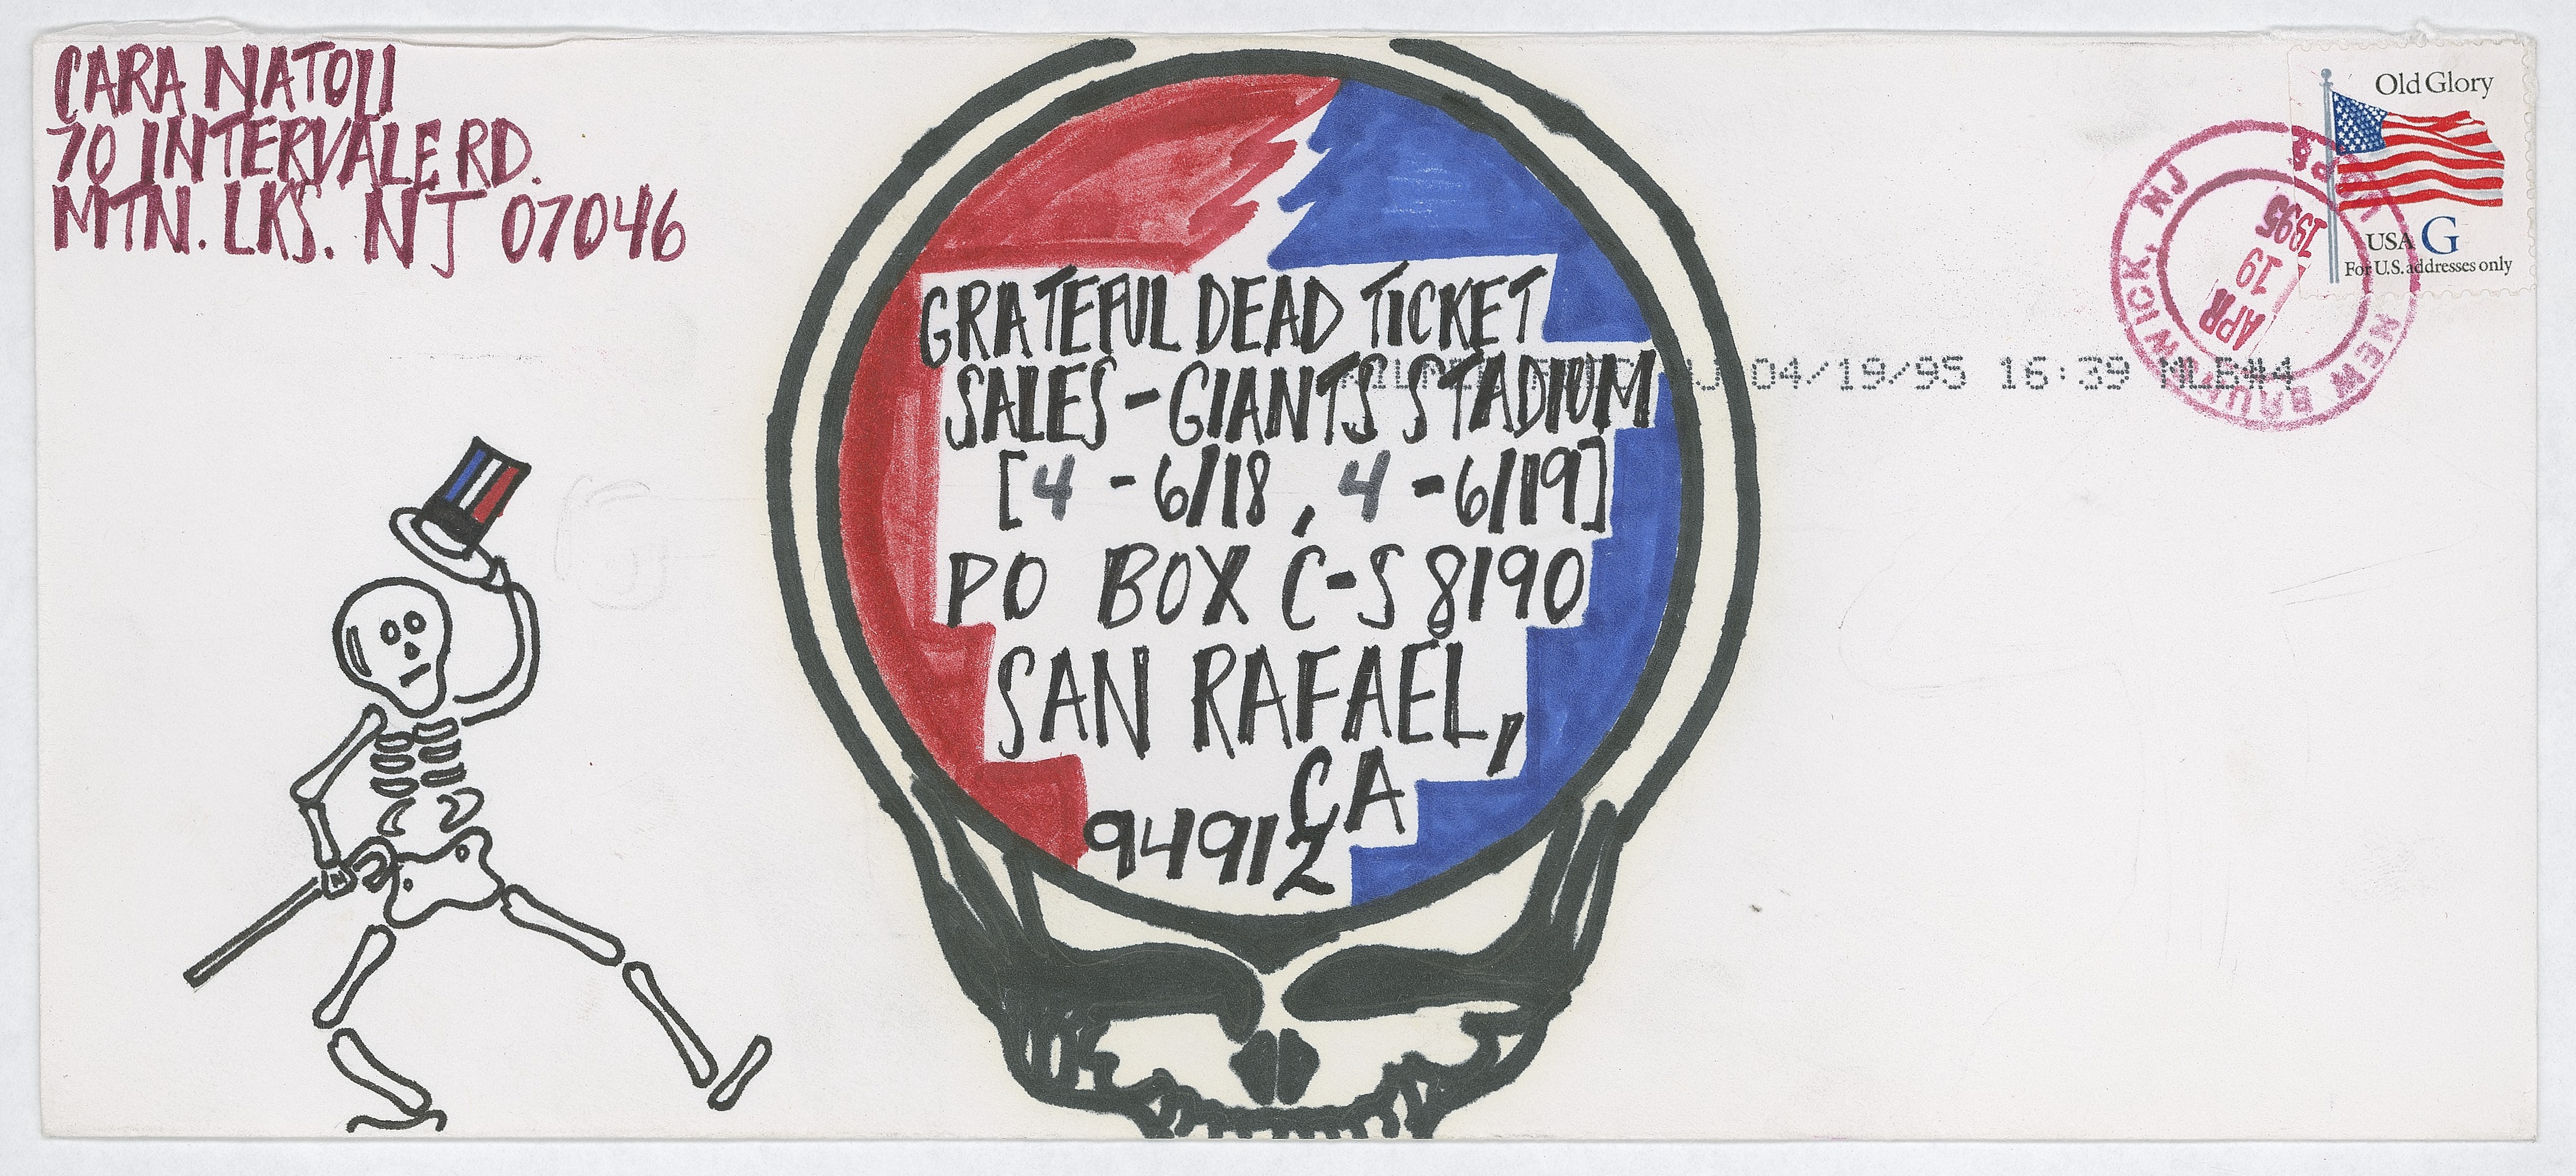 CARA NATOLI
70 INTERVALE RD.
MTN. LKS. NJ 07046
Old Glory
USA G
For U.S. addresses only
NEW BRUNSWICK, NJ
USPS
APR
19
1995
NJ 04/19/95 16:39 MLE#4
GRATEFUL DEAD TICKET
SALES - GIANTS STADIUM
[4 - 6/18, 4 - 6/19]
PO BOX C-S 8190
SAN RAFAEL,
CA
94912